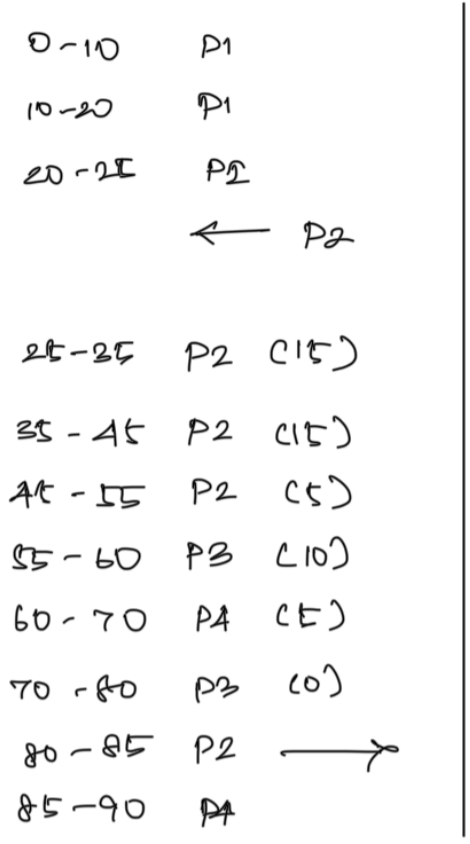 0-10 P1
10-20 P1
20-25 P1
← P2
25-35 P2 (15)
35-45 P2 (15)
45-55 P2 (5)
55-60 P3 (10)
60-70 P4 (5)
70-80 P3 (0)
80-85 P2 →
85-90 P4